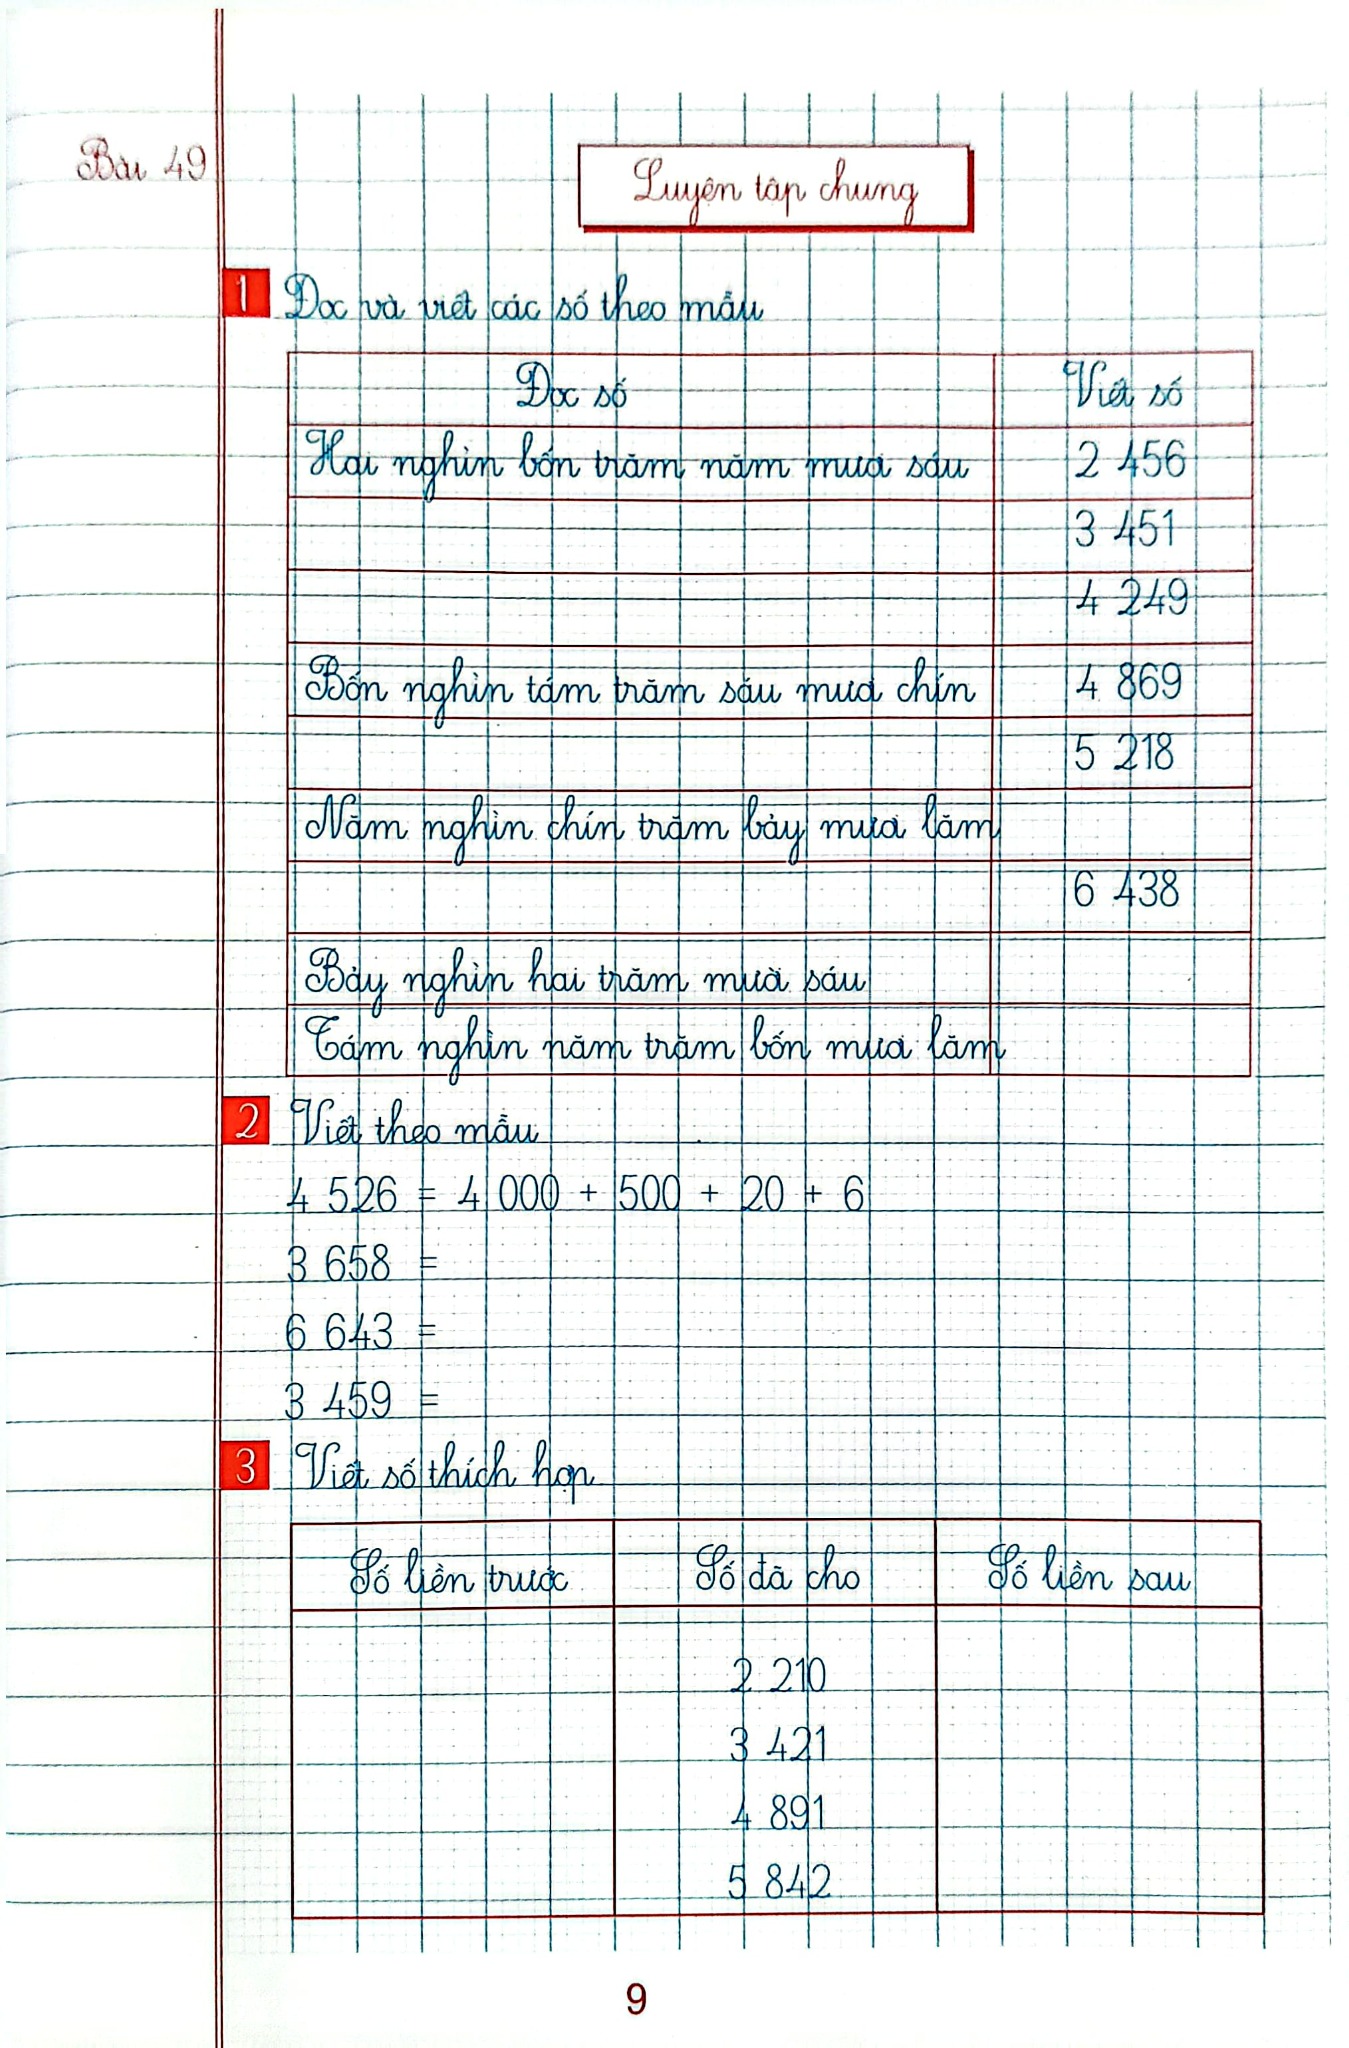 Bài 49
Luyện tập chung
1 Đọc và viết các số theo mẫu
Đọc số Viết số
Hai nghìn bốn trăm năm mươi sáu 2 456
3 451
4 249
Bốn nghìn tám trăm sáu mươi chín 4 869
5 218
Năm nghìn chín trăm bảy mươi lăm
6 438
Bảy nghìn hai trăm mười sáu
Tám nghìn năm trăm bốn mươi lăm
2 Viết theo mẫu
4 526 = 4 000 + 500 + 20 + 6
3 658 =
6 643 =
3 459 =
3 Viết số thích hợp
Số liền trước Số đã cho Số liền sau
2 210
3 421
4 891
5 842
9